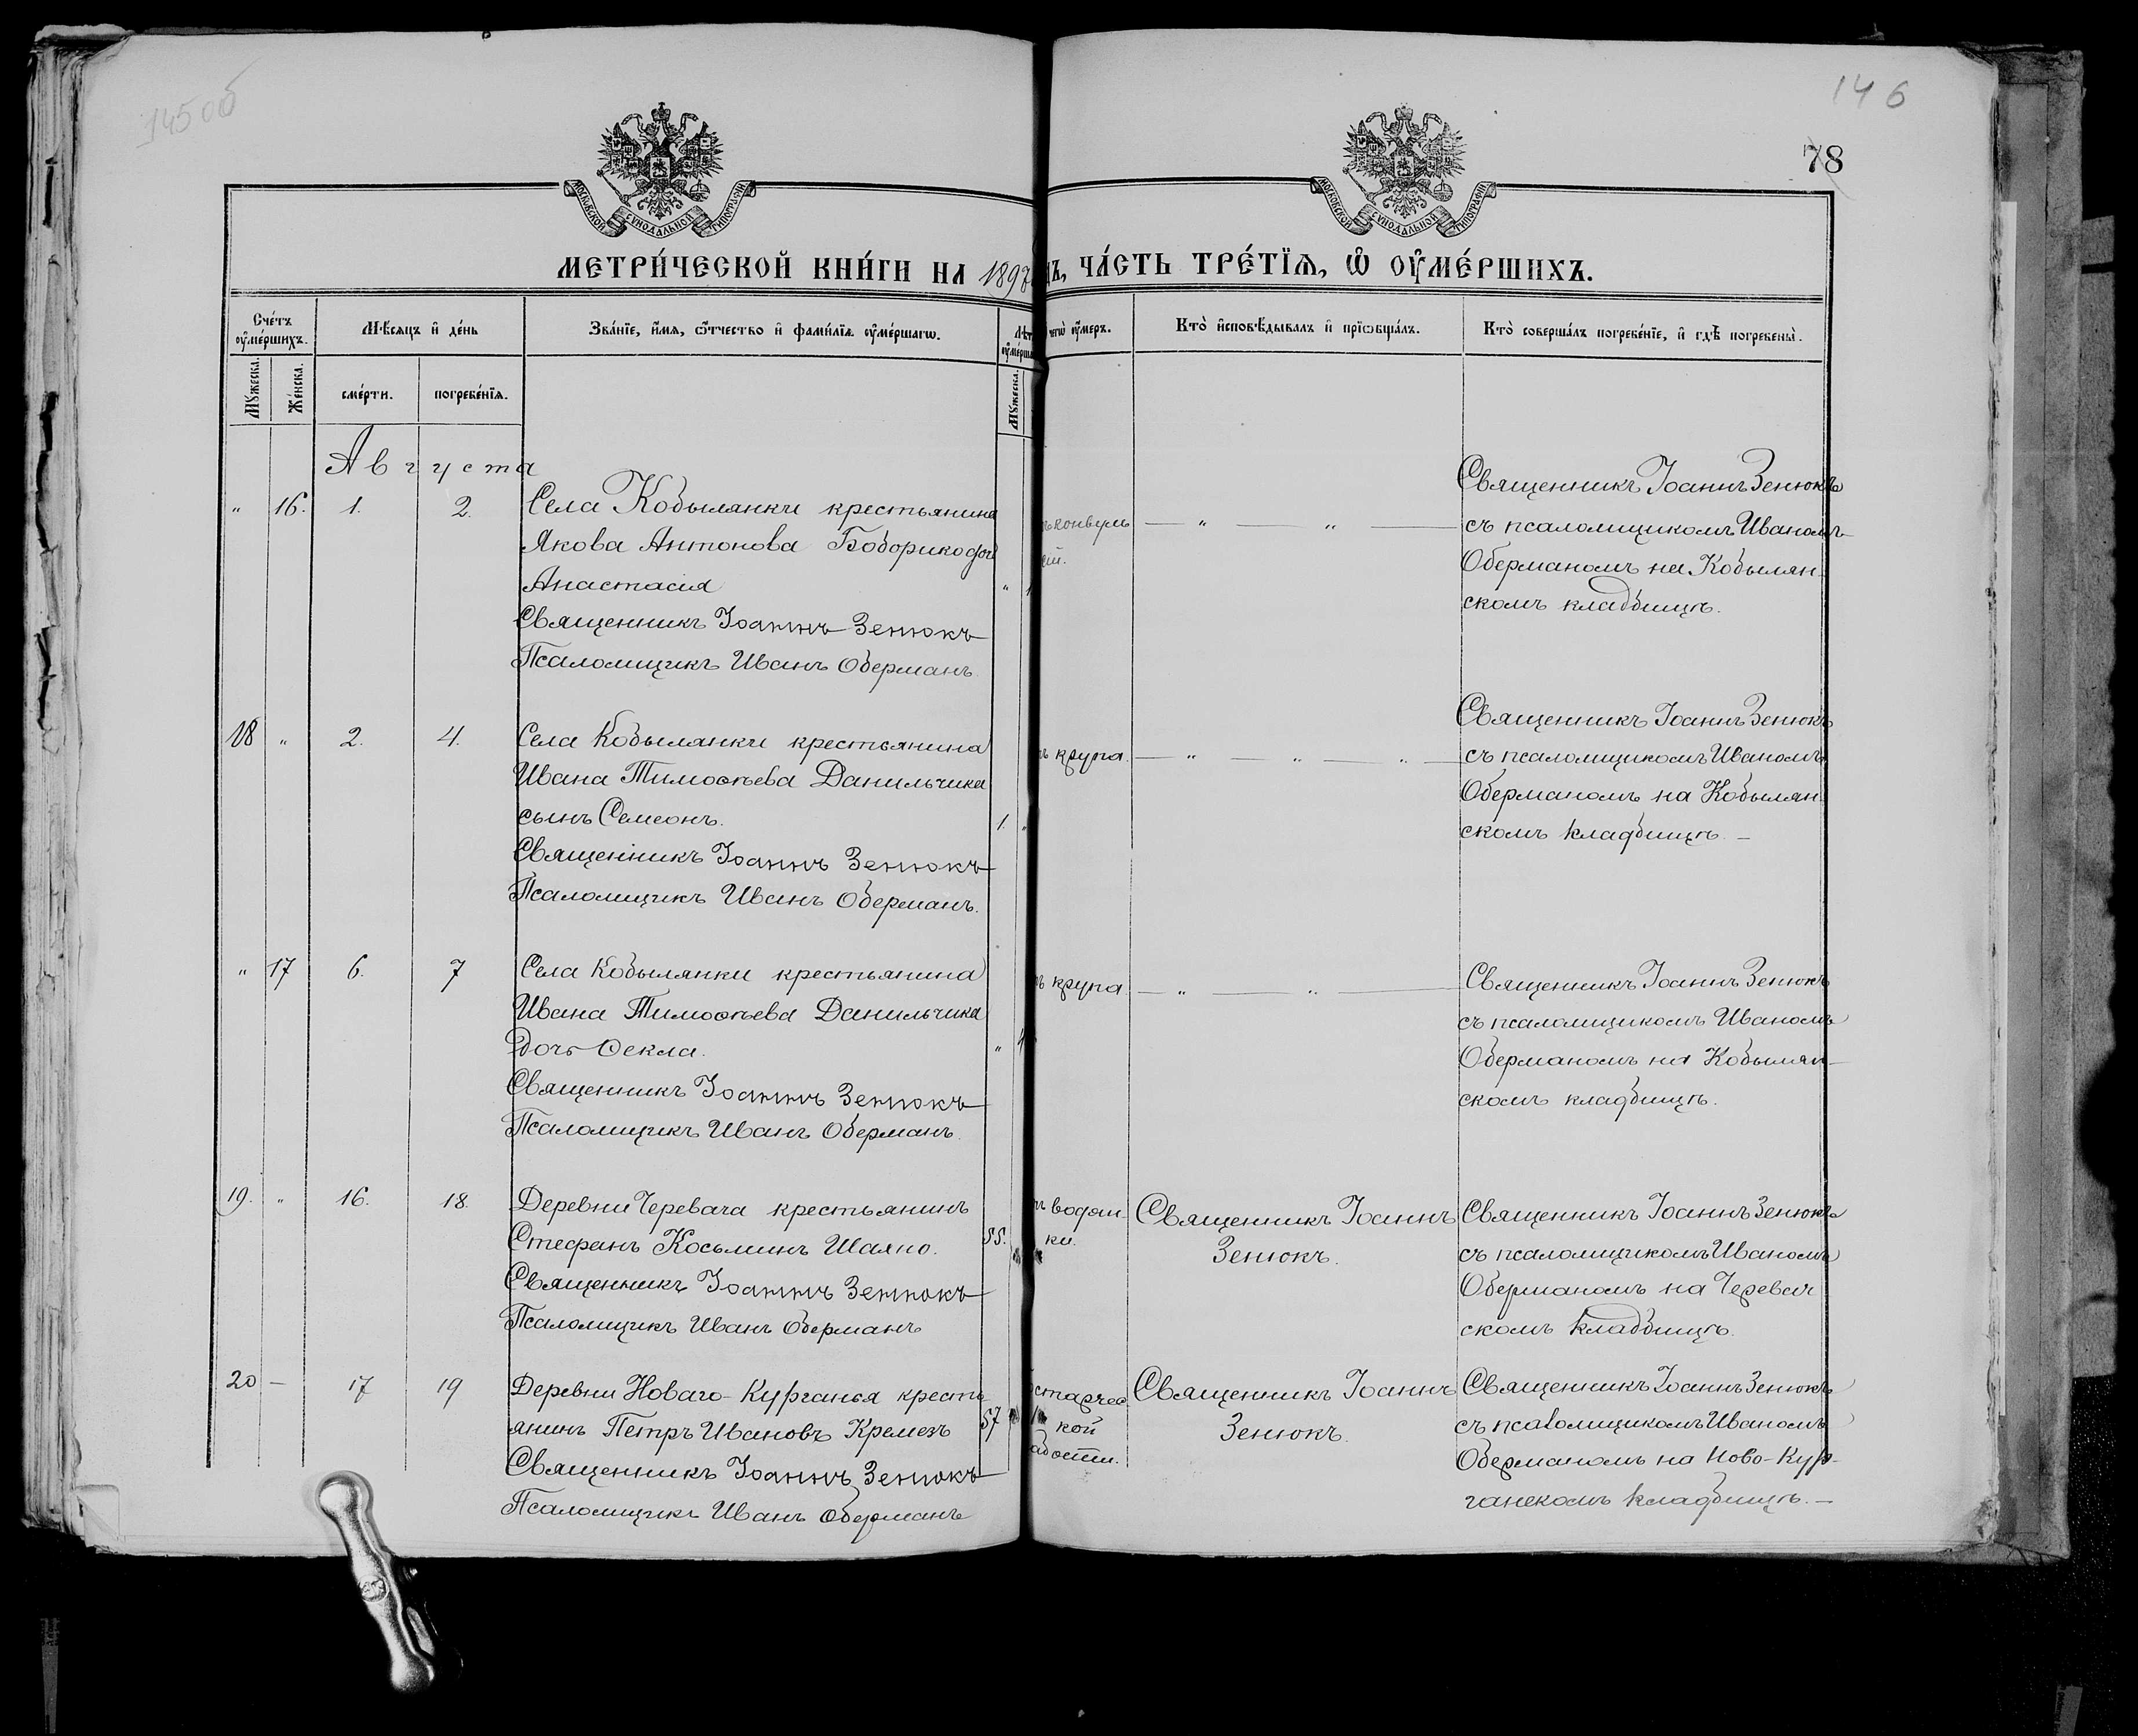 145об
146
78
МОСКОВСКОЙ СУНОДАЛЬНОЙ ТИПОГРАФІИ
МОСКОВСКОЙ СУНОДАЛЬНОЙ ТИПОГРАФІИ
МЕТРИ́ЧЕСКОЙ КНИ́ГИ НА 1897
ЧА́СТЬ ТРЕ́ТЇѦ, Ѽ ОУ҆МЕ́РШИХЪ.
Сче́тъ оу҆ме́ршихъ.
Мѣ́сяцъ и҆ де́нь
Зва́нїе, и҆́мѧ, ѻ҆́тчество и҆ фами́лїѧ оу҆ме́ршагѡ.
оу҆́меръ.
Кто̀ и҆сповѣ́дывалъ и҆ прїѡбща́лъ.
Кто̀ соверша́лъ погребе́нїе, и҆ гдѣ̀ погребены̀.
Мꙋ́жеска.
Же́нска.
сме́рти.
погребе́нїѧ.
Мꙋ́жеска.
Августа
" 16. 1. 2. Села Кобылянки крестьянина
Якова Антонова Боборико дочь
Анастасія "
Священникъ Іоаннъ Зенюкъ
Псаломщикъ Иванъ Оберманъ
— " — " —
Священникъ Іоаннъ Зенюкъ
съ псаломщикомъ Иваномъ
Оберманомъ на Кобылян-
скомъ кладбищѣ.
18 " 2. 4. Села Кобылянки крестьянина
Ивана Тимоѳѣева Данильчика
сынъ Симеонъ. 1. "
Священникъ Іоаннъ Зенюкъ
Псаломщикъ Иванъ Оберманъ.
крупа. — " — " — " —
Священникъ Іоаннъ Зенюкъ
съ псаломщикомъ Иваномъ
Оберманомъ на Кобылян-
скомъ кладбищѣ. —
" 17 6. 7 Села Кобылянки крестьянина
Ивана Тимоѳѣева Данильчика
дочь Ѳекла. " 4
Священникъ Іоаннъ Зенюкъ
Псаломщикъ Иванъ Оберманъ.
крупа — " — " —
Священникъ Іоаннъ Зенюкъ
съ псаломщикомъ Иваномъ
Оберманомъ на Кобылян-
скомъ кладбищѣ.
19. " 16. 18. Деревни Черевача крестьянинъ
Стефанъ Косьминъ Шаяно. 55.
Священникъ Іоаннъ Зенюкъ
Псаломщикъ Иванъ Оберманъ
водян-
ки.
Священникъ Іоаннъ
Зенюкъ.
Священникъ Іоаннъ Зенюкъ
съ псаломщикомъ Иваномъ
Оберманомъ на Черевач
скомъ кладбищѣ.
20 — 17 19 Деревни Новаго-Курганья кресть
янинъ Петръ Ивановъ Кремезъ 57
Священникъ Іоаннъ Зенюкъ
Псаломщикъ Иванъ Оберманъ
старчес
кой
Священникъ Іоаннъ
Зенюкъ.
Священникъ Іоаннъ Зенюкъ
съ псаломщикомъ Иваномъ
Оберманомъ на Ново-Кур-
ганскомъ кладбищѣ. —